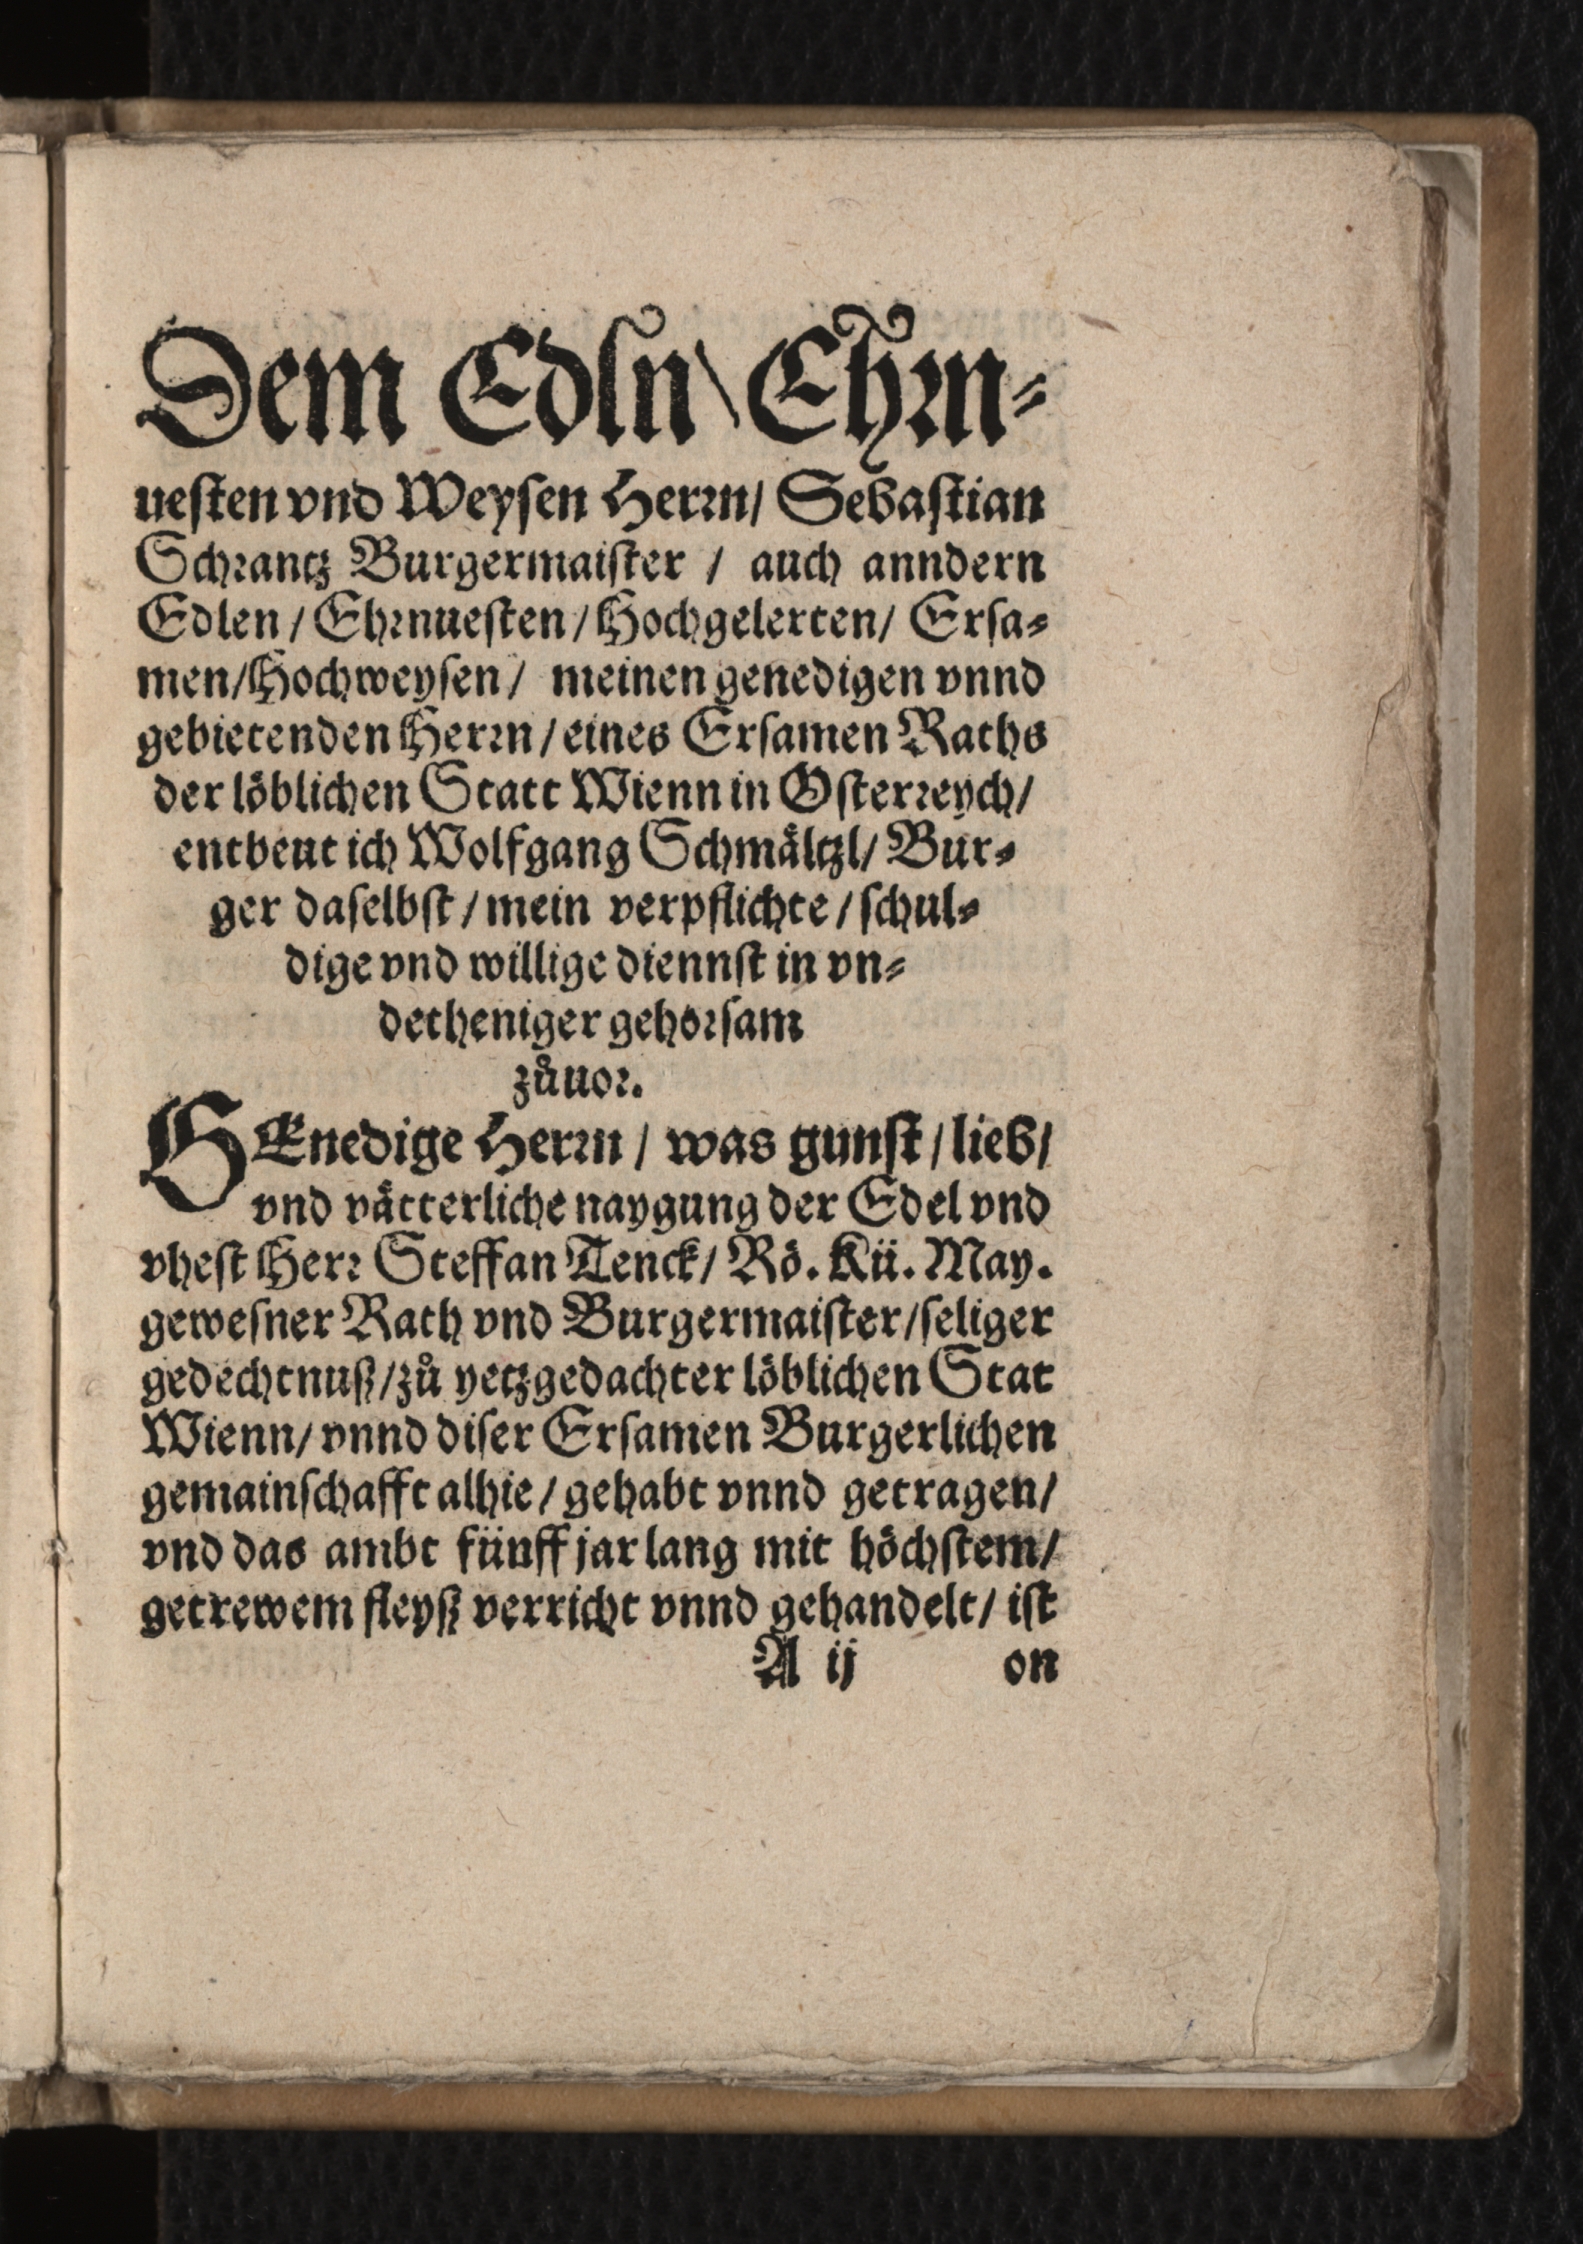 Dem Edln\ Ehrn⸗
ueſten vnd Weyſen Herrn/ Sebaſtian
Schrantz Burgermaiſter / auch anndern
Edlen / Ehrnueſten / Hochgelerten/ Erſa⸗
men/Hochweyſen / meinen genedigen vnnd
gebietenden Herrn / eines Erſamen Raths
der löblichen Statt Wienn in Oſterreych/
entbeut ich Wolfgang Schmåltzl/ Bur⸗
ger daſelbſt / mein verpflichte / ſchul⸗
dige vnd willige diennſt in vn⸗
detheniger gehorſam
zůuor.
GEnedige Herrn / was gunſt / lieb/
vnd våtterliche naygung der Edel vnd
vheſt Herr Steffan Tenck/ Rö. Kü. May.
geweſner Rath vnd Burgermaiſter/ſeliger
gedechtnuß/zů yetzgedachter löblichen Stat
Wienn/ vnnd diſer Erſamen Burgerlichen
gemainſchafft alhie / gehabt vnnd getragen/
vnd das ambt fünff jar lang mit höchſtem/
getrewem fleyß verricht vnnd gehandelt/ iſt
A ij on